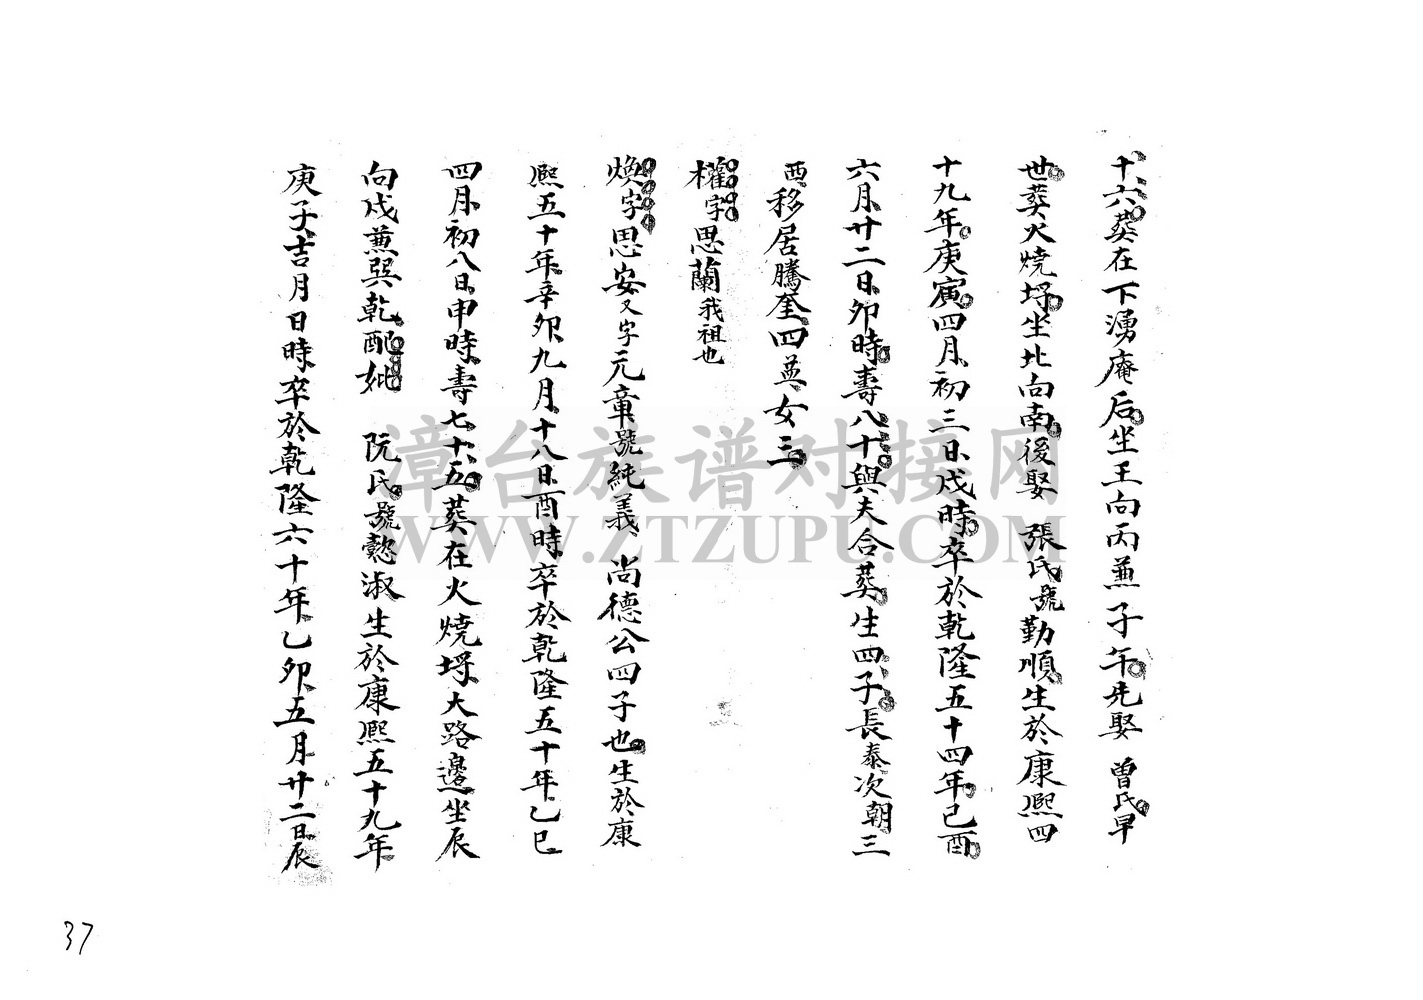 十六葬在下湧庵后坐壬向丙兼子午先娶 曽氏早
世葬火燒埒坐北向南後娶 張氏號勤順生於康熙四
十九年庚寅四月初三日戌時卒於乾隆五十四年己酉
六月廿二日卯時壽八十與夫合葬生四子長泰次朝三
西移居騰奎四英女三
權字思蘭我祖也
煥字思安又字元章號純義尚德公四子也生於康
熙五十年辛卯九月十八日酉時卒於乾隆五十年乙巳
四月初八日申時壽七十五葬在火燒埒大路邊坐辰
向戌兼巽乾配妣 阮氏號懿淑生於康熙五十九年
庚子吉月日時卒於乾隆六十年乙卯五月廿二日辰
漳台族谱对接网
WWW.ZTZUPU.COM
37